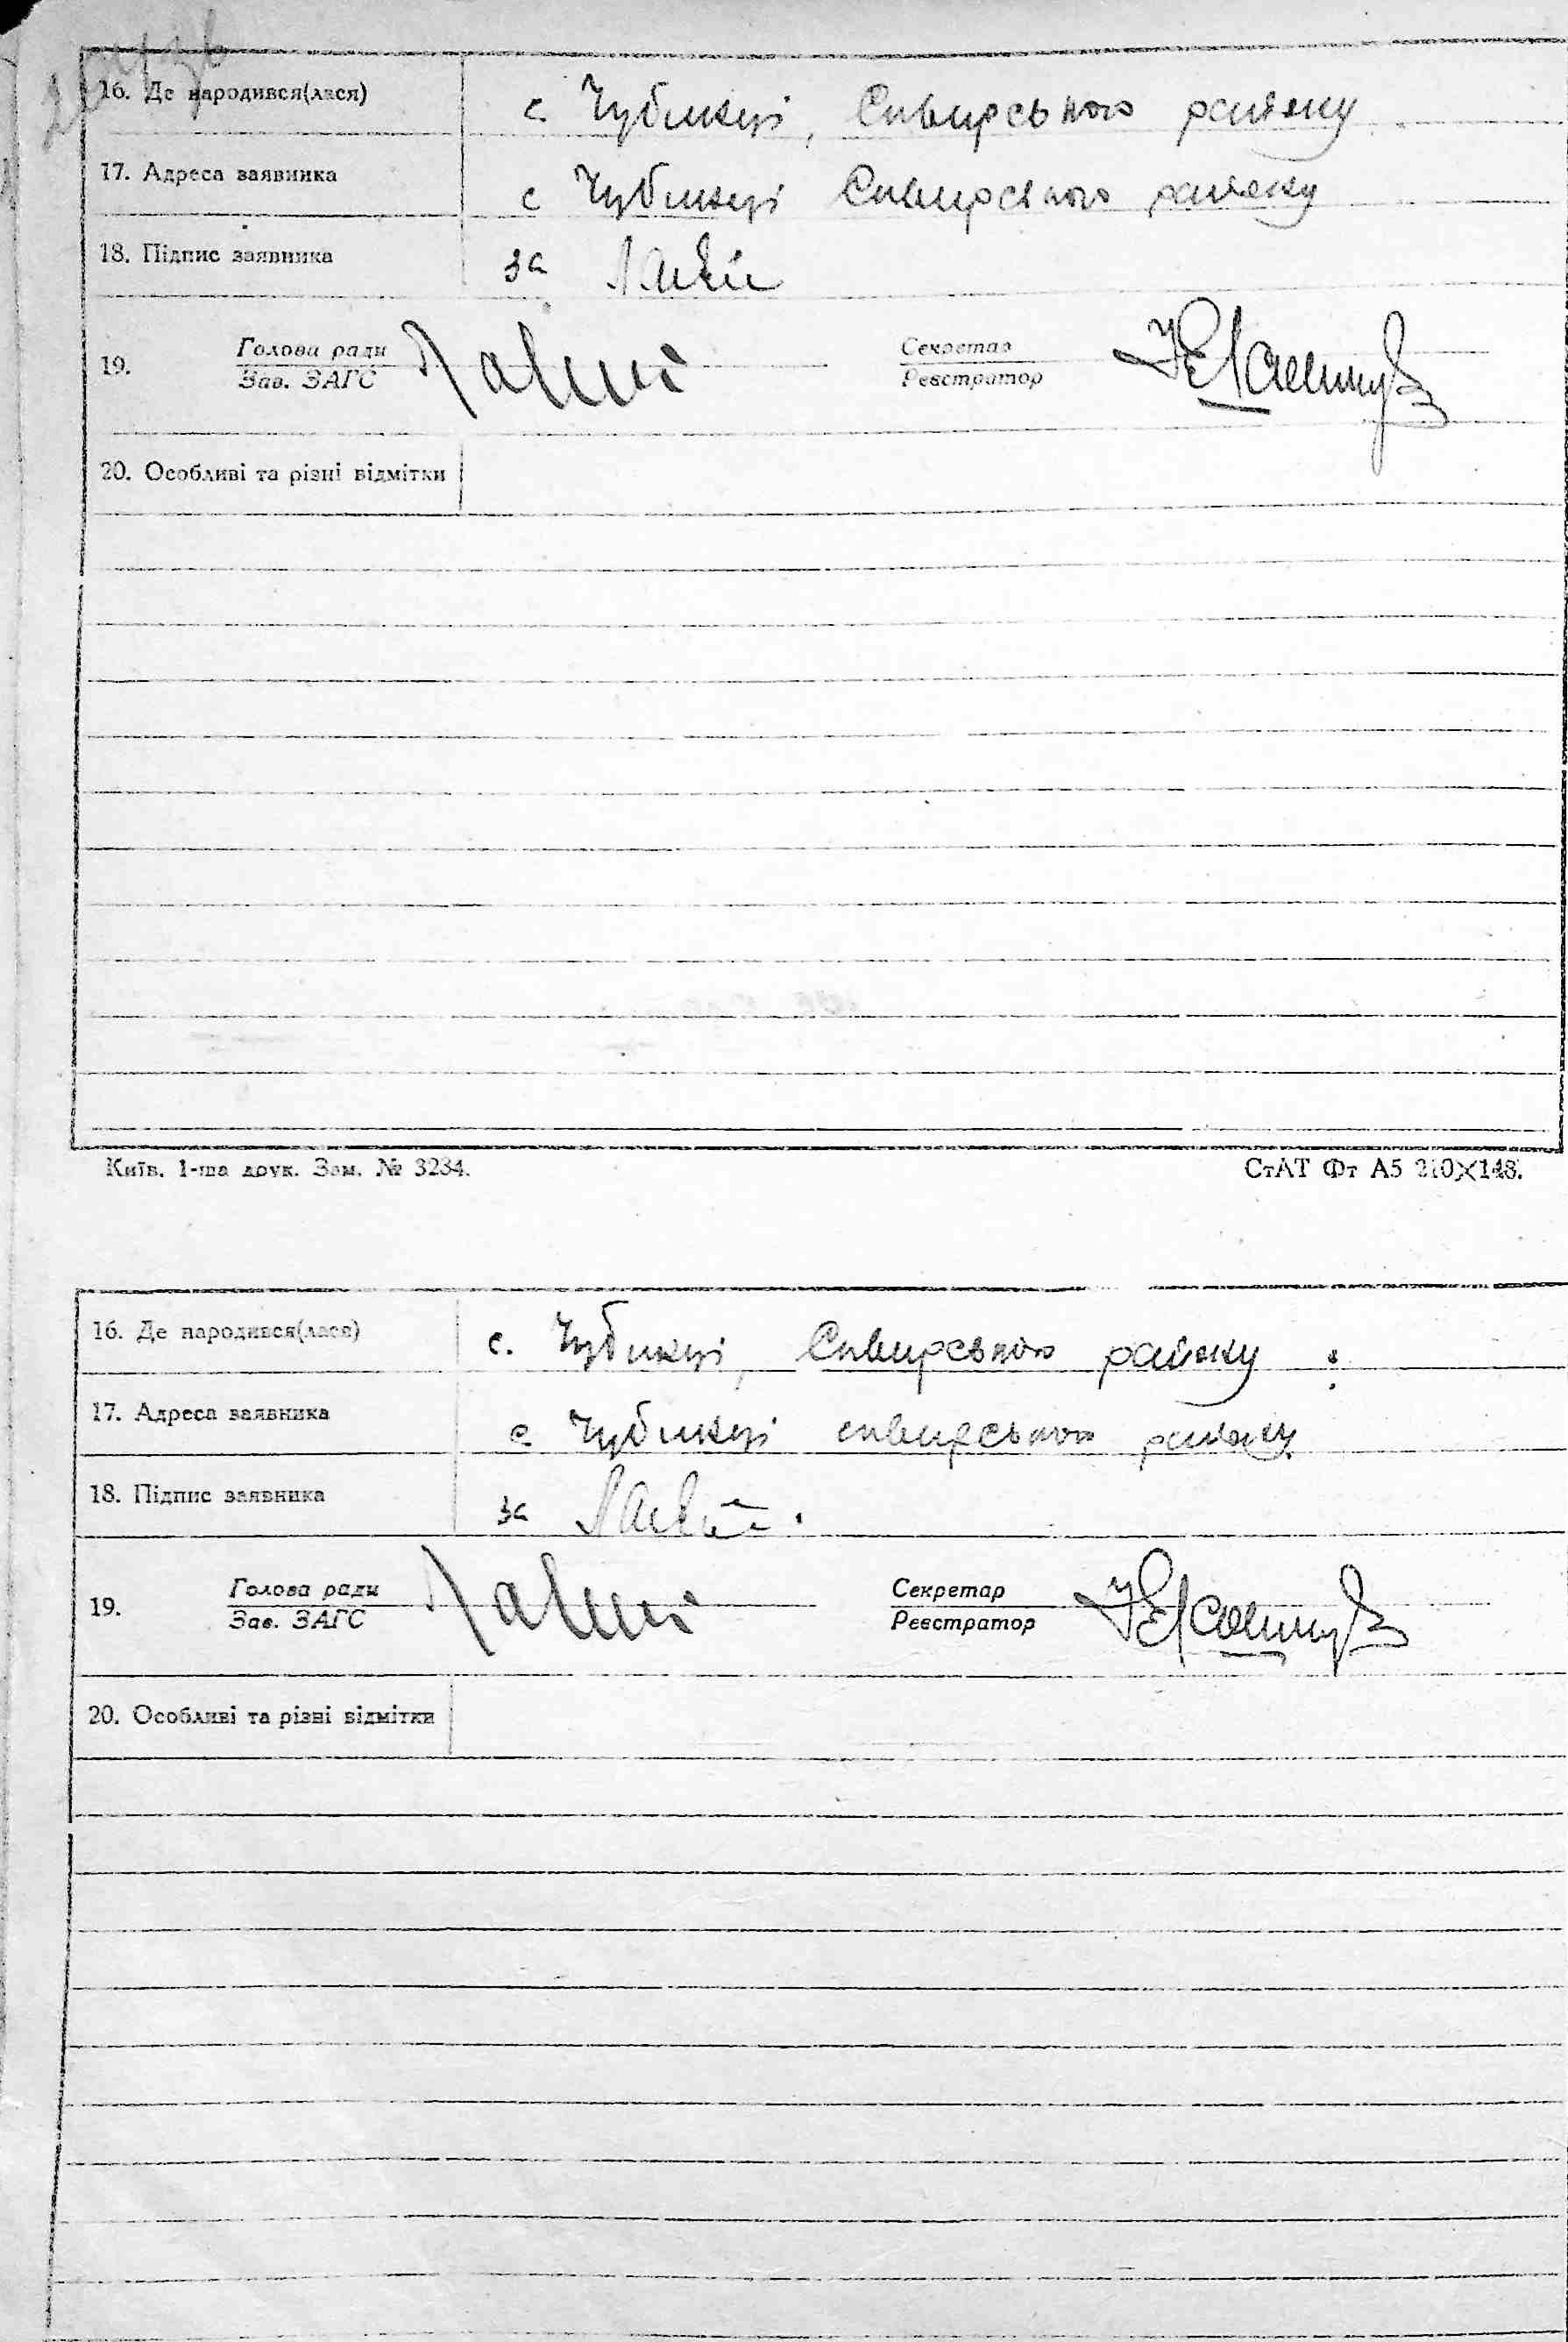 16. Де народився(лася) с. Чубинці, Сквирського району
17. Адреса заявника с Чубинці Сквирського району
18. Підпис заявника за
19. Голова ради Секретар
Зав. ЗАГС Реєстратор
20. Особливі та різні відмітки
Київ. 1-ша друк. Зам. № 3234. СтАТ Фт А5 210×148.
16. Де народився(лася) с. Чубинці, Сквирського району
17. Адреса заявника с Чубинці сквирського району
18. Підпис заявника за
19. Голова ради Секретар
Зав. ЗАГС Реєстратор
20. Особливі та різні відмітки